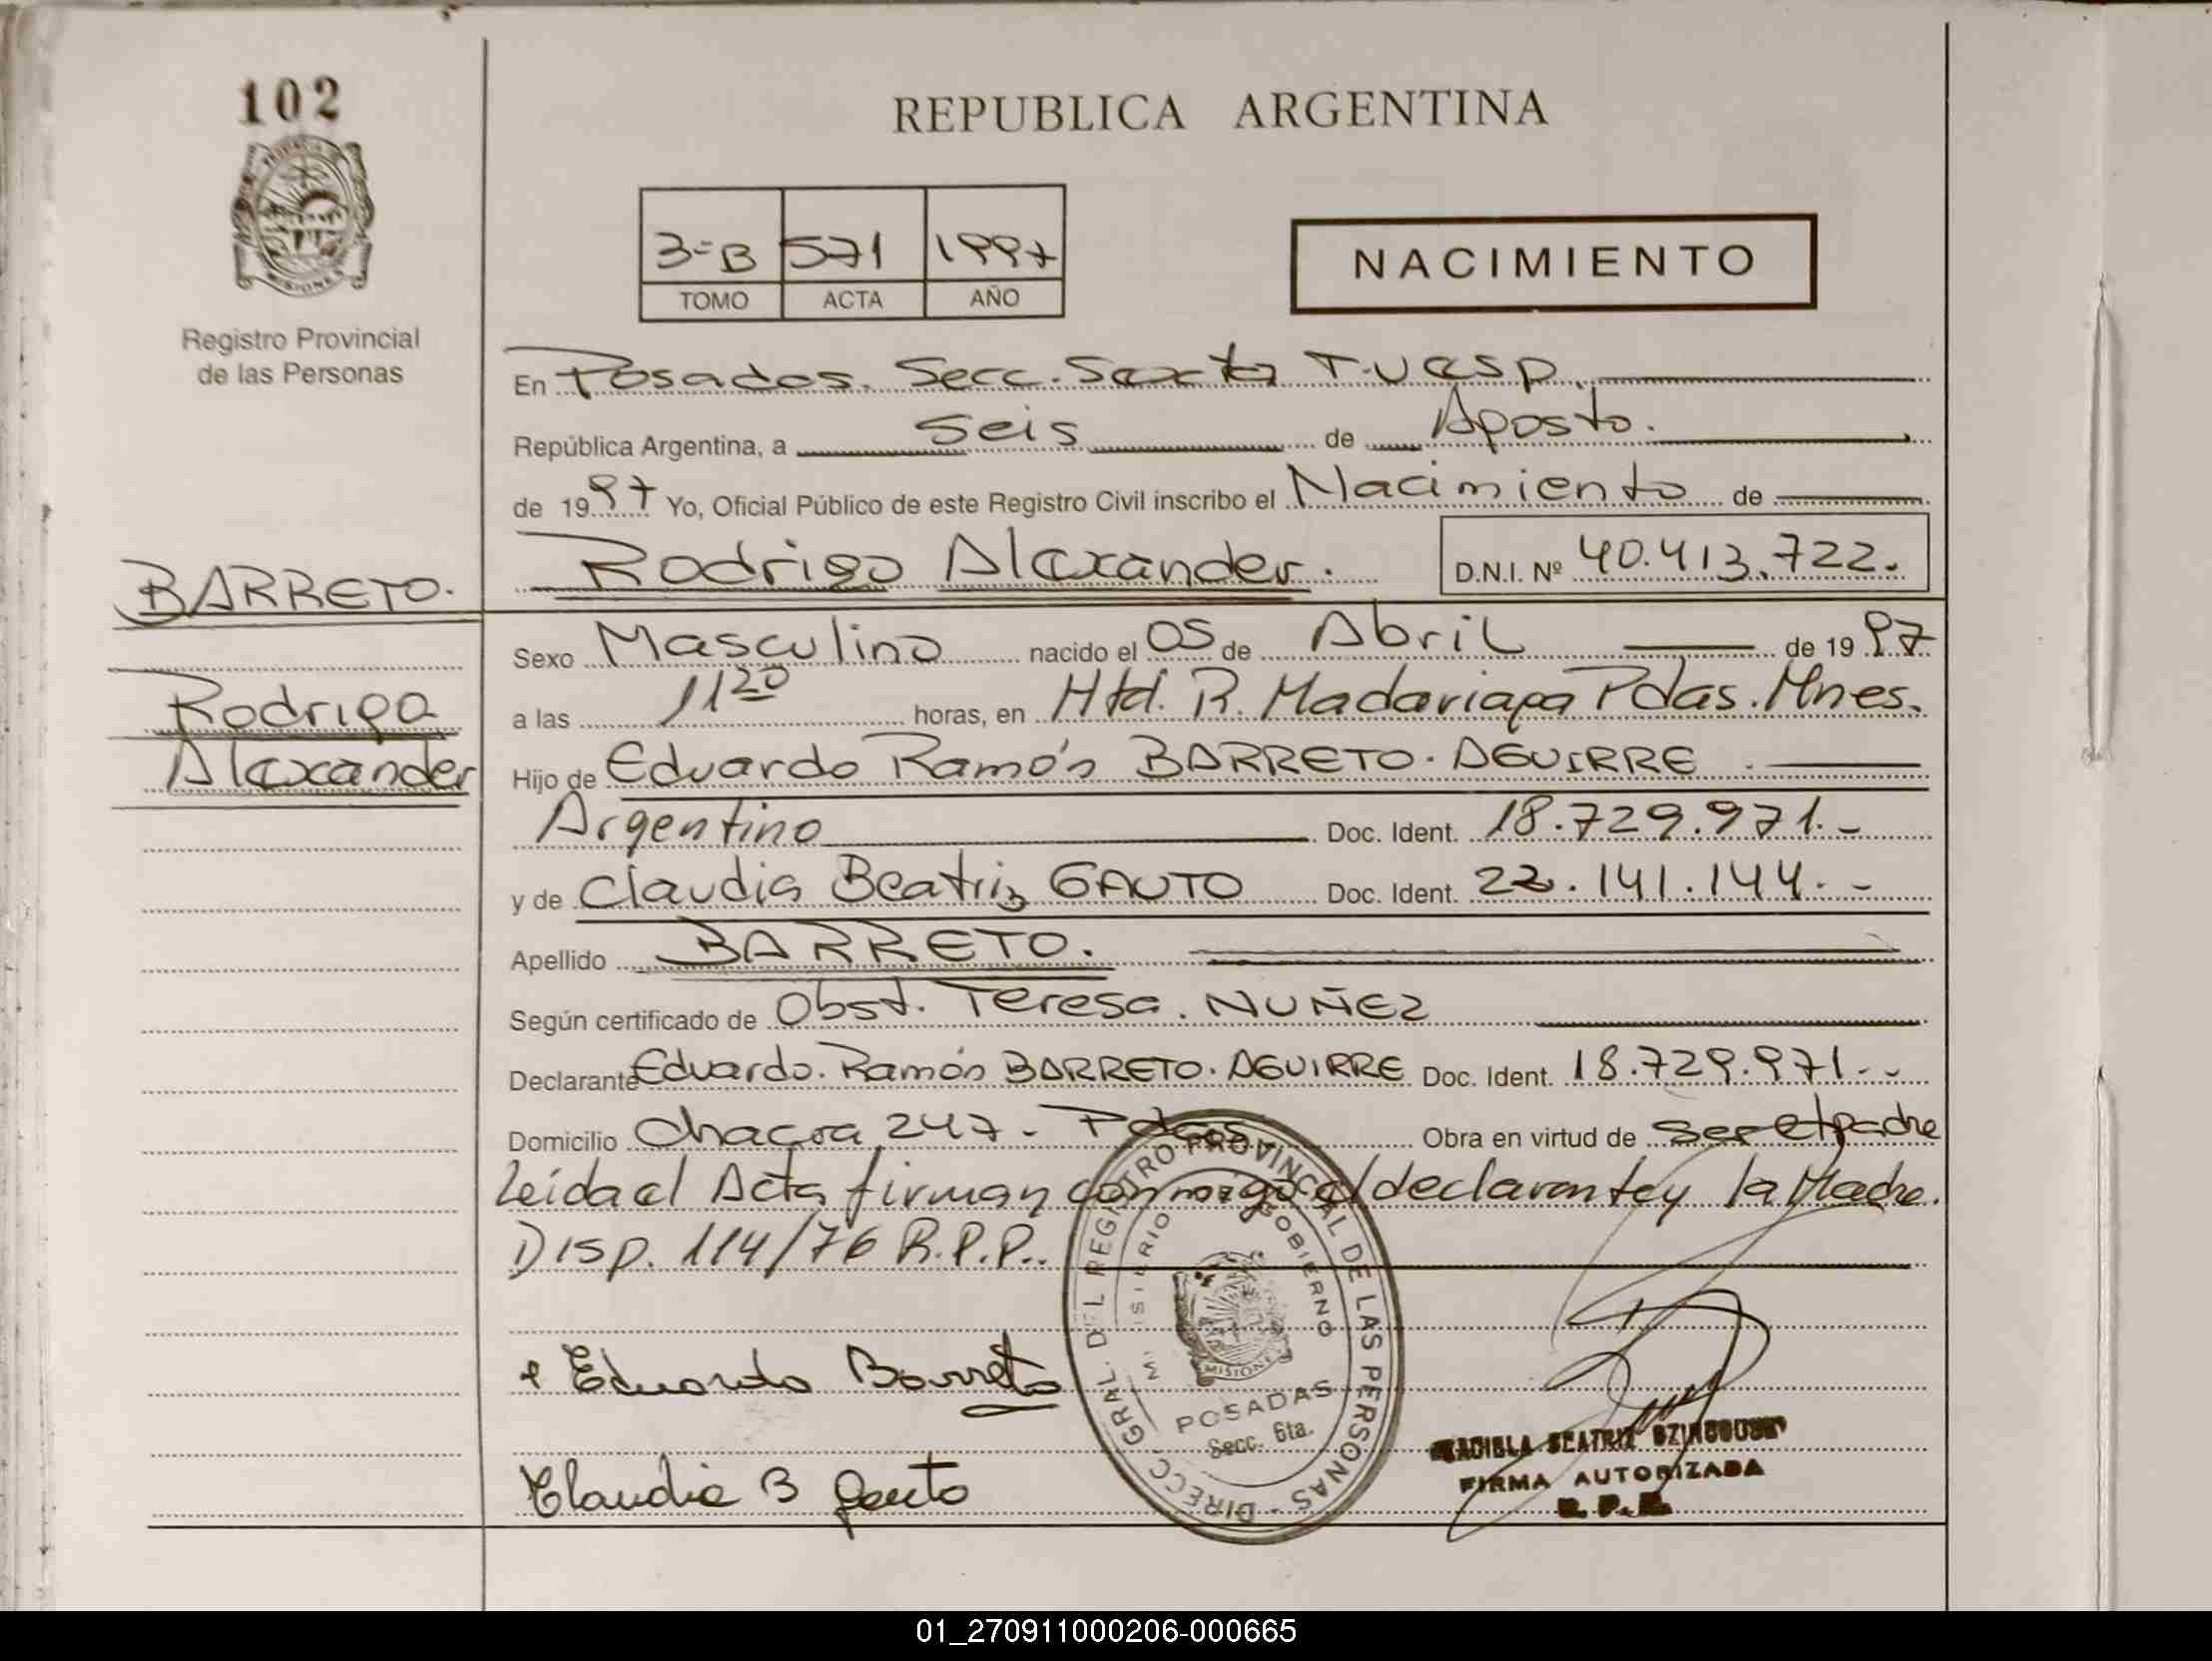 102
REPUBLICA ARGENTINA
3=B 571 1997
TOMO ACTA AÑO
NACIMIENTO
Registro Provincial
de las Personas
En Posadas. Secc. Sexta T.U.C.S.P.
República Argentina, a seis de Agosto.
de 1997 Yo, Oficial Público de este Registro Civil inscribo el Nacimiento de
Rodrigo Alexander. D.N.I. Nº 40.413.722.
BARRETO.
Rodrigo
Alexander
Sexo Masculino nacido el 05 de Abril de 1997
a las 11 20 horas, en Htal. R. Madariaga Pdas. Mnes.
Hijo de Eduardo Ramón BARRETO. AGUIRRE
Argentino Doc. Ident. 18.729.971.-
y de Claudia Beatriz GAUTO Doc. Ident. 22.141.144.-
Apellido BARRETO.
Según certificado de Obst. Teresa. NUÑEZ
Declarante Eduardo. Ramón BARRETO. AGUIRRE Doc. Ident. 18.729.971.-
Domicilio Chacra 247 - Pdas Obra en virtud de ser el padre
Leida el Acta firman conmigo el declarante y la Madre.
Disp. 114/76 R.P.P..
Eduardo Barreto
Claudia B Gauto
DIRECC. GRAL. DEL REGISTRO PROVINCIAL DE LAS PERSONAS
MINISTERIO GOBIERNO
MISIONES
POSADAS
Secc. 6ta.
BEATRIZ
FIRMA AUTORIZADA
01_270911000206-000665